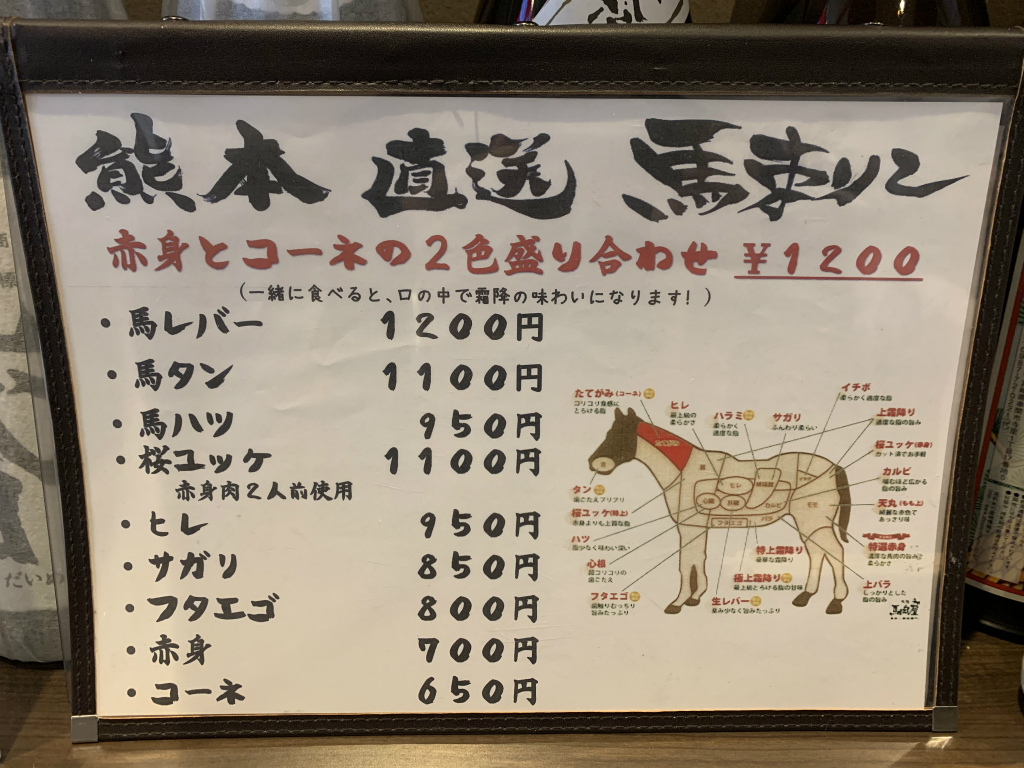 熊本 直送 馬まつり
赤身とコーネの2色盛り合わせ ¥1200
(一緒に食べると、口の中で霜降の味わいになります!)
・馬レバー 1200円
・馬タン 1100円
・馬ハツ 950円
・桜ユッケ 1100円
赤身肉2人前使用
・ヒレ 950円
・サガリ 850円
・フタエゴ 800円
・赤身 700円
・コーネ 650円
たてがみ(コーネ)
コリコリ食感に
とろける脂
ヒレ
最上級の
柔らかさ
ハラミ
柔らかく
適度な脂
サガリ
ふんわり柔らい
イチボ
柔らかく適度な脂
上霜降り
適度な脂の旨み
桜ユッケ(赤身)
カット済でお手軽
カルビ
噛むほど広がる
脂の旨み
天丸(もも上)
綺麗な赤色で
あっさり味
特選赤身
濃厚な馬肉の旨みと
柔らかさ
上バラ
しっかりとした
脂の旨み
タン
歯ごたえプリプリ
桜ユッケ(特上)
赤身よりも上質な脂
ハツ
脂少なく味わい深い
心根
超コリコリの
歯ごたえ
フタエゴ
歯触りむっちり
旨みたっぷり
特上霜降り
豪華な霜降り
極上霜降り
最上級とろける脂の甘味
生レバー
臭み少なく旨みたっぷり
たてがみ
ヒレ
心臓
肝臓
カルビ
バラ
フタエゴ
モモ
だいめ